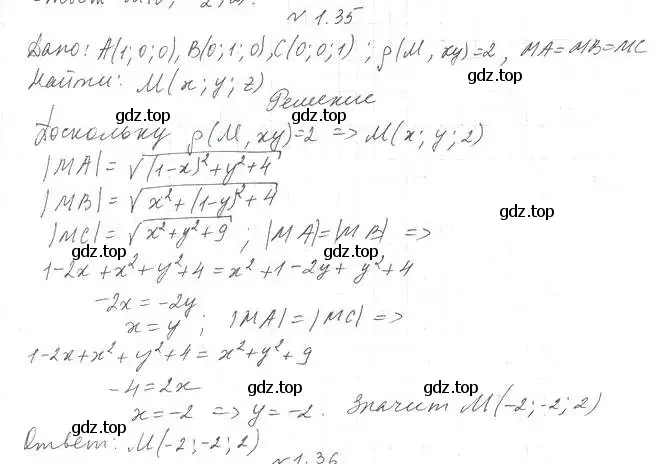 № 1.35
Дано: A(1; 0; 0), B(0; 1; 0), C(0; 0; 1) ; ρ(M, xy)=2, MA=MB=MC
Найти: M(x; y; z)
Решение
Поскольку ρ(M, xy)=2 => M(x; y; 2)
gdz.top gdz.top gdz.top
|MA|= √((1-x)²+y²+4)
|MB|= √(x²+(1-y)²+4)
gdz.top
|MC|= √(x²+y²+9) ; |MA|=|MB| =>
gdz.top gdz.top
1-2x+x²+y²+4=x²+1-2y+y²+4
-2x=-2y
x=y ; |MA|=|MC| =>
gdz.top gdz.top
1-2x+x²+y²+4=x²+y²+9
gdz.top
-4=2x
gdz.top gdz.top
x=-2 => y=-2. Значит M(-2; -2; 2)
gdz.top
Ответ: M(-2; -2; 2)
gdz.top
№ 1.36